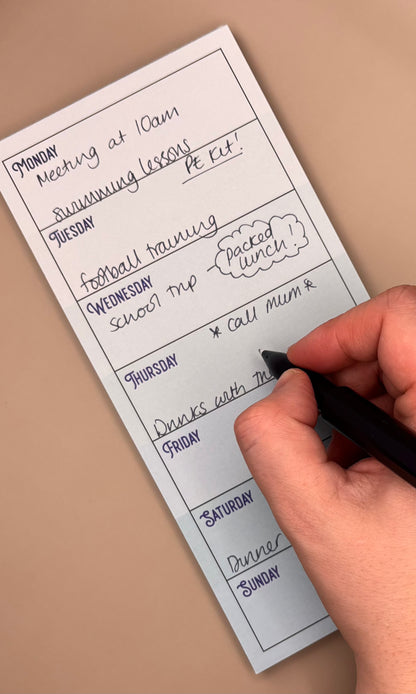 MONDAY
Meeting at 10am
swimming lessons
PE Kit!
TUESDAY
football training
WEDNESDAY
school trip
packed
lunch!
* call mum *
THURSDAY
Drinks with
FRIDAY
SATURDAY
Dinner
SUNDAY